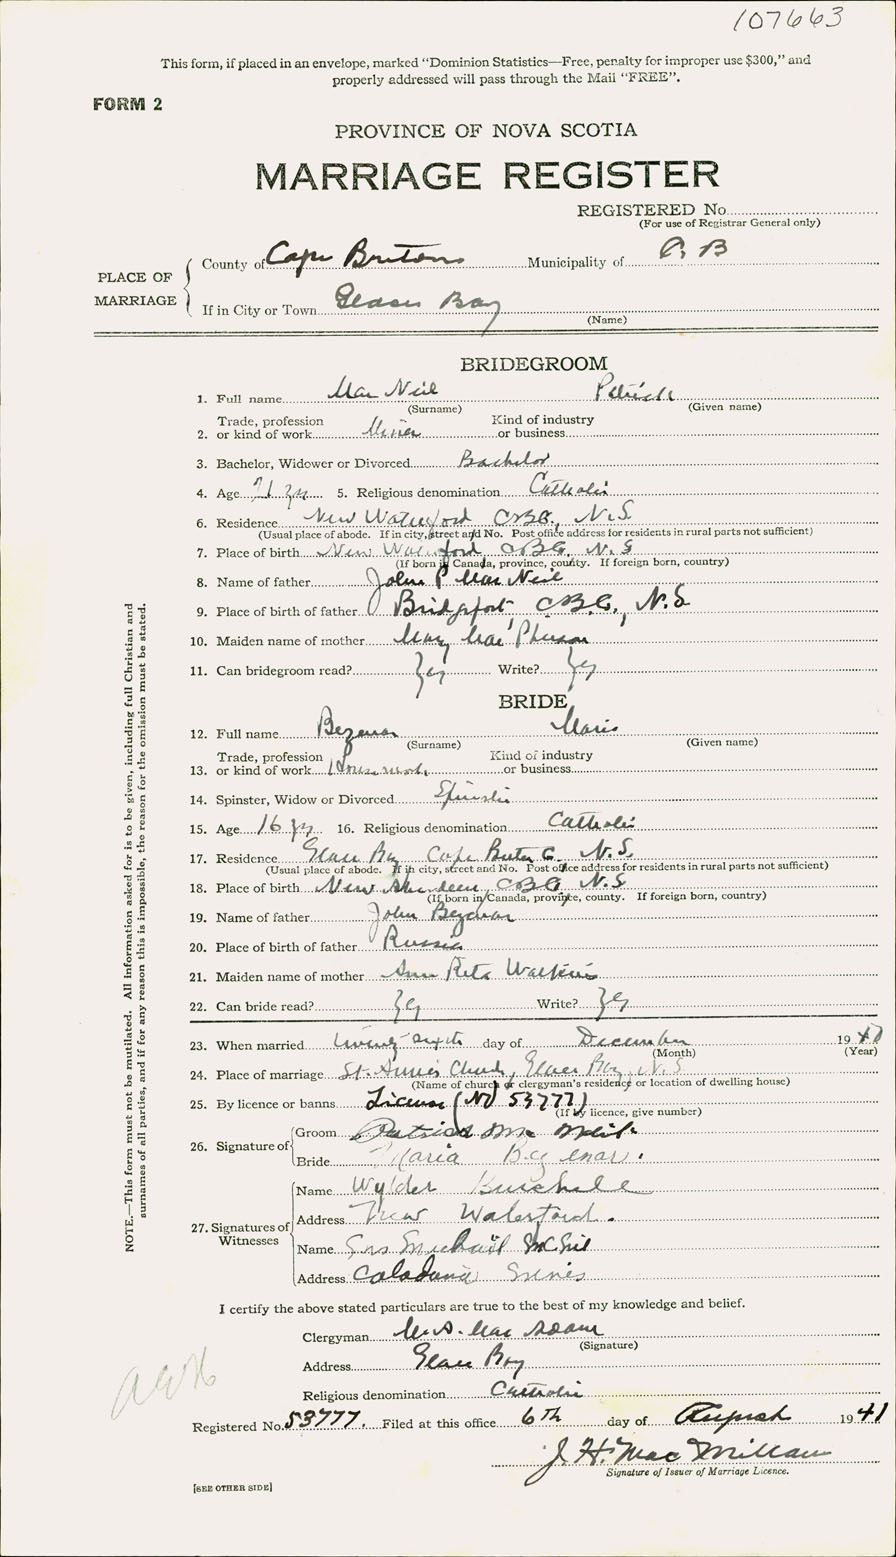 107663
This form, if placed in an envelope, marked "Dominion Statistics—Free, penalty for improper use $300," and
properly addressed will pass through the Mail "FREE".
FORM 2
PROVINCE OF NOVA SCOTIA
MARRIAGE REGISTER
REGISTERED No.
(For use of Registrar General only)
PLACE OF MARRIAGE
County of Cape Breton Municipality of C. B
If in City or Town Glace Bay
(Name)
BRIDEGROOM
1. Full name Mac Neil Patrick
(Surname) (Given name)
Trade, profession Kind of industry
2. or kind of work Miner or business
3. Bachelor, Widower or Divorced Bachelor
4. Age 21 yrs 5. Religious denomination Catholic
6. Residence New Waterford CBCo, N.S.
(Usual place of abode. If in city, street and No. Post office address for residents in rural parts not sufficient)
7. Place of birth New Waterford, CBCo, N.S
(If born in Canada, province, county. If foreign born, country)
8. Name of father John P Mac Neil
9. Place of birth of father Bridgeport, CBCo., N.S
10. Maiden name of mother Mary Mac Pherson
11. Can bridegroom read? Yes Write? Yes
BRIDE
12. Full name Bezenar Marie
(Surname) (Given name)
Trade, profession Kind of industry
13. or kind of work Housework or business
14. Spinster, Widow or Divorced Spinster
15. Age 16 yrs 16. Religious denomination Catholic
17. Residence Glace Bay Cape Breton C. N.S.
(Usual place of abode. If in city, street and No. Post office address for residents in rural parts not sufficient)
18. Place of birth New Aberdeen, CBCo, N.S
(If born in Canada, province, county. If foreign born, country)
19. Name of father John Bezenar
20. Place of birth of father Russia
21. Maiden name of mother Ann Rita Watkins
22. Can bride read? Yes Write? Yes
23. When married twenty-sixth day of December 19
(Month) (Year)
24. Place of marriage St. Anne's Church, Glace Bay, N.S
(Name of church or clergyman's residence or location of dwelling house)
25. By licence or banns License (No 53777)
(If by licence, give number)
26. Signature of
Groom Patrick Mc Neil
Bride Maria Bezenar.
27. Signatures of Witnesses
Name Wylder Burchell
Address New Waterford.
Name Mrs Michael McNeil
Address Caledonia
I certify the above stated particulars are true to the best of my knowledge and belief.
Clergyman Mac Adam
(Signature)
Address Glace Bay
Religious denomination Catholic
Registered No. 53777. Filed at this office 6th day of August 1941
J. H. Mac Millan
Signature of Issuer of Marriage Licence.
[SEE OTHER SIDE]
NOTE.—This form must not be mutilated. All Information asked for is to be given, including full Christian and
surnames of all parties, and if for any reason this is impossible, the reason for the omission must be stated.